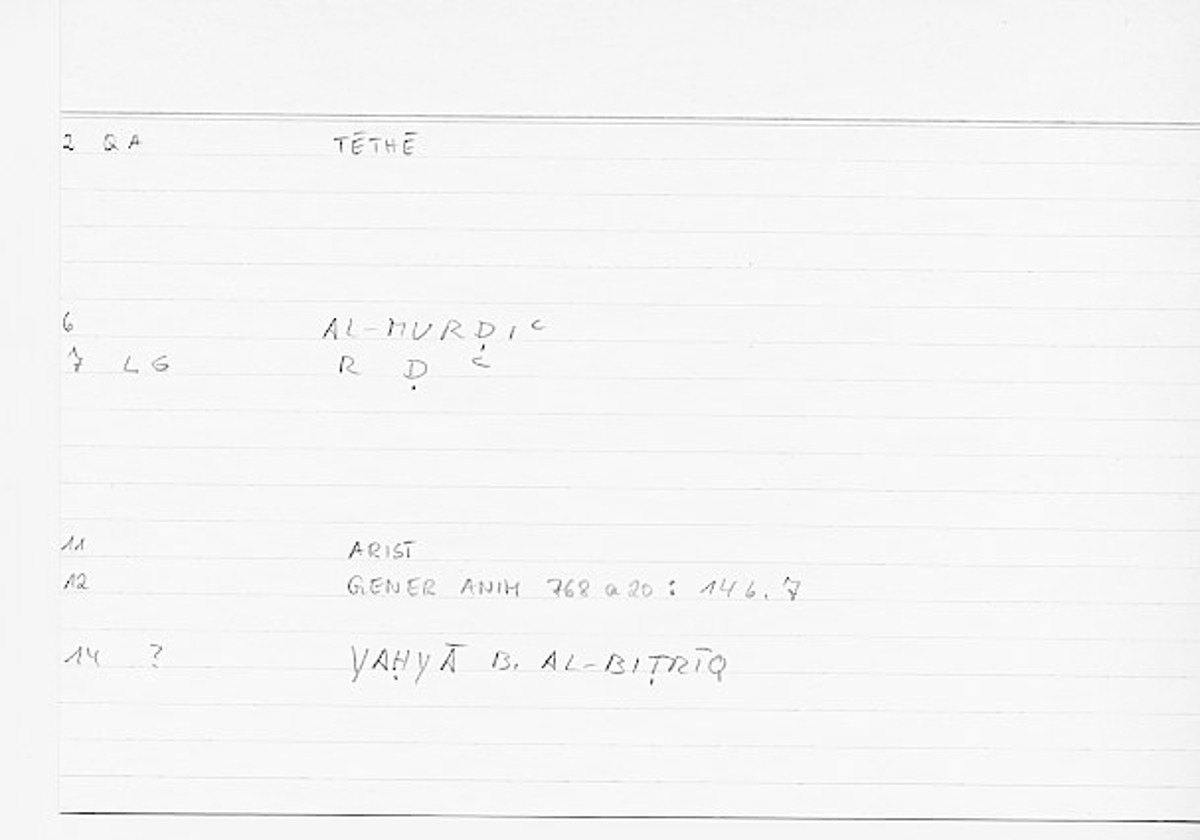 2 QA TĒTHĒ
6 AL-MURḌIʿ
7 LG R Ḍ ʿ
11 ARIST
12 GENER ANIM 768 a 20 : 146.7
14 ? YAḤYĀ B. AL-BIṬRĪQ